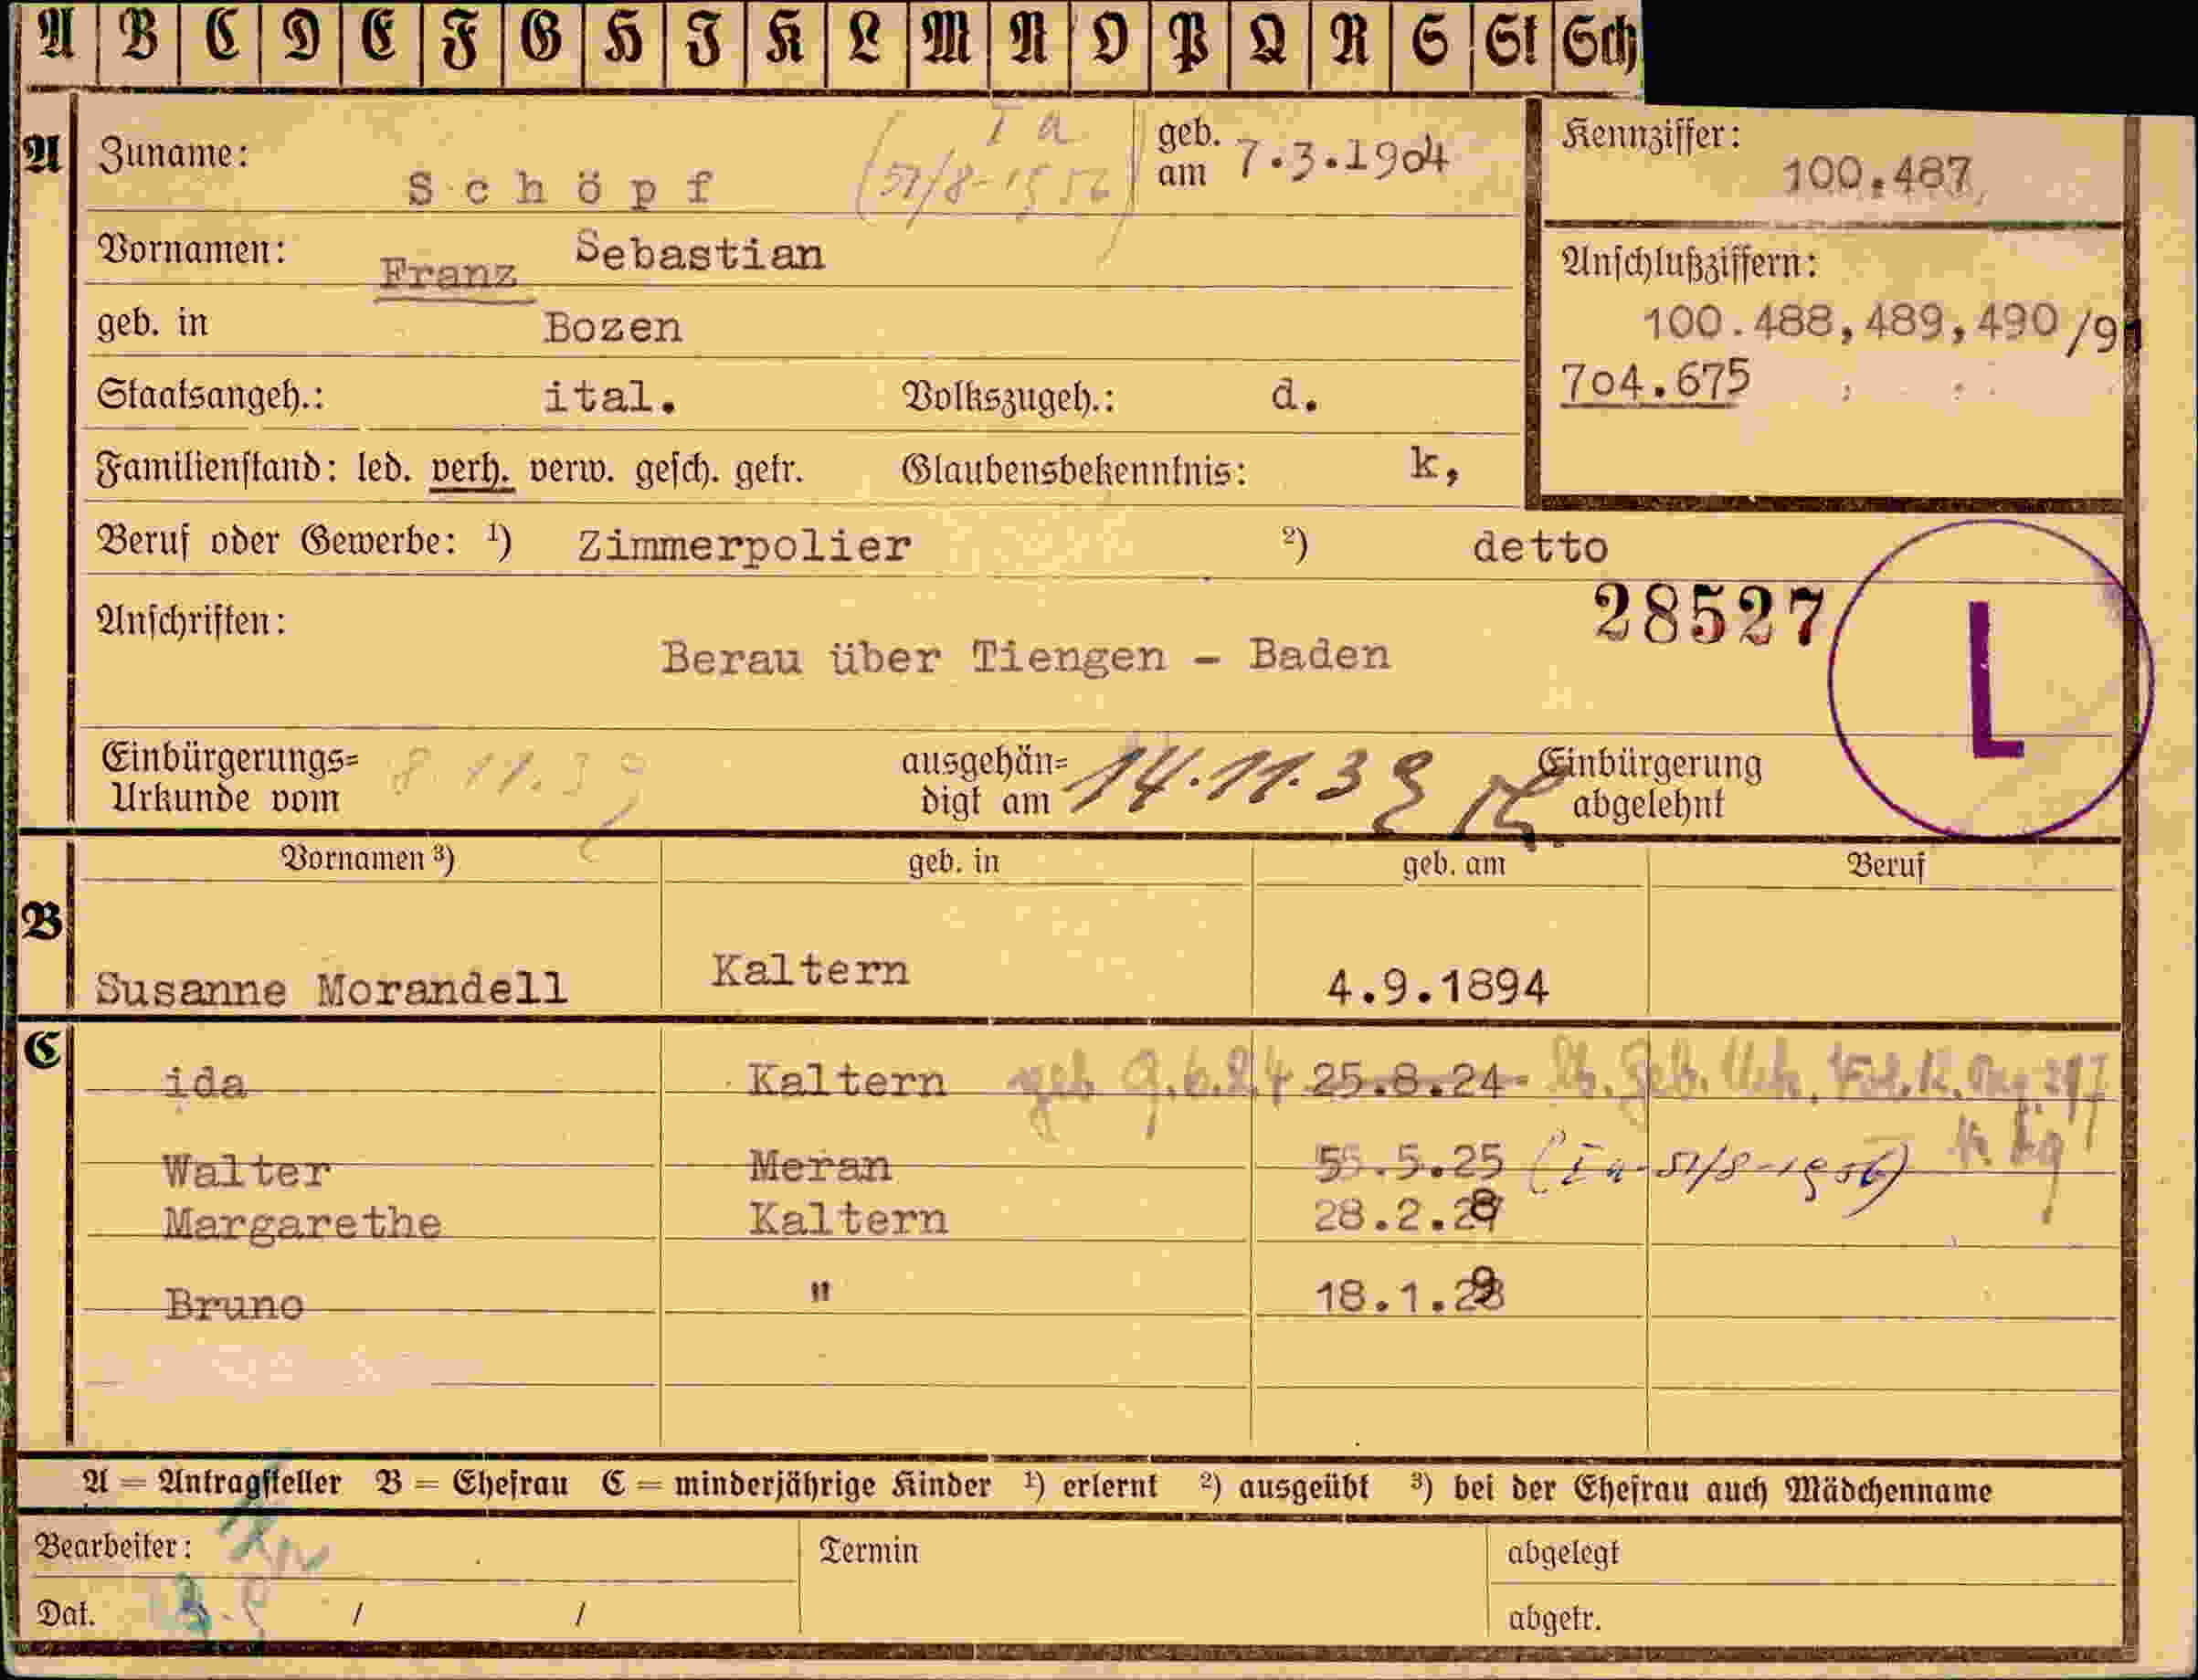 A B C D E F G H I K L M N O P Q R S St Sch
A Zuname: Schöpf
I a
(51/8-1956)
geb. am 7.3.1904
Kennziffer: 100.487
Vornamen: Franz Sebastian
Anschlußziffern:
100.488,489,490/91
704.675
geb. in Bozen
Staatsangeh.: ital. Volkszugeh.: d.
Familienstand: led. verh. verw. gesch. getr. Glaubensbekenntnis: k,
Beruf oder Gewerbe: 1) Zimmerpolier 2) detto
28527
L
Anschriften:
Berau über Tiengen - Baden
Einbürgerungs=
Urkunde vom 8.11.39
ausgehän=
digt am 14.11.39
Einbürgerung
abgelehnt
Vornamen 3) geb. in geb. am Beruf
B
Susanne Morandell Kaltern 4.9.1894
C
ida Kaltern geb 9.6.24 25.8.24 Geb.
Walter Meran 5.5.25 (I a-51/8-1956)
Margarethe Kaltern 28.2.28
Bruno " 18.1.29
A = Antragsteller B = Ehefrau C = minderjährige Kinder 1) erlernt 2) ausgeübt 3) bei der Ehefrau auch Mädchenname
Bearbeiter: Termin abgelegt
Dat. / / abgetr.